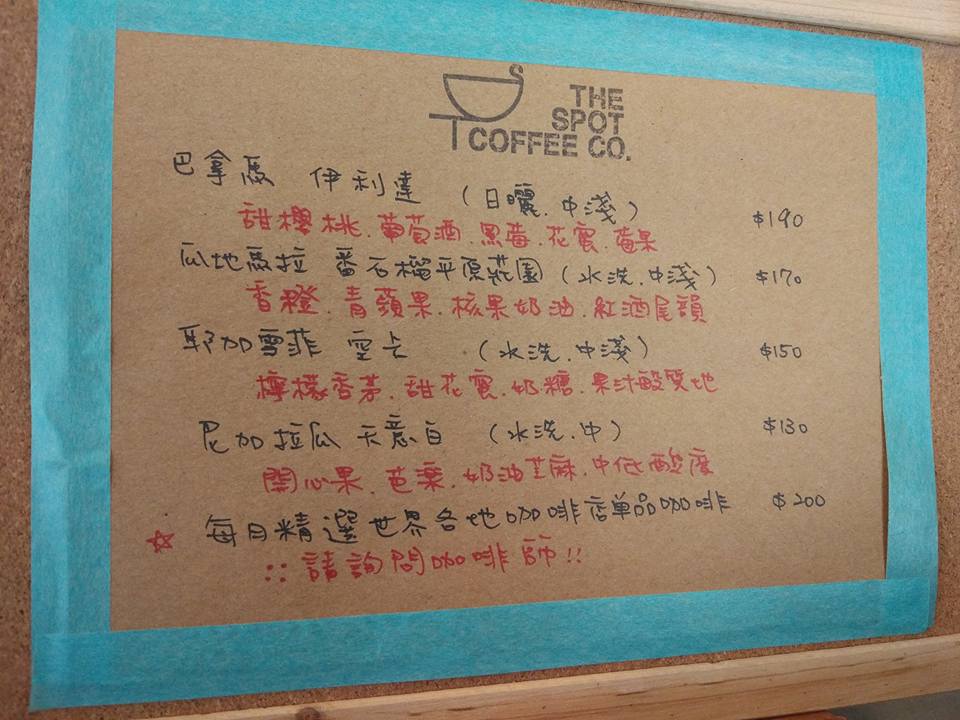 THE
SPOT
COFFEE CO.
巴拿馬 伊利達 (日曬.中淺) $190
甜櫻桃.葡萄酒.黑莓.花蜜.莓果
瓜地馬拉 番石榴平原莊園 (水洗.中淺) $170
香橙.青蘋果.核果奶油.紅酒尾韻
耶加雪菲 空卡 (水洗.中淺) $150
檸檬香茅.甜花蜜.奶糖.果汁酸質地
尼加拉瓜 天意白 (水洗.中) $130
開心果.芭樂.奶油芝麻.中低酸度
☆ 每月精選世界各地咖啡店單品咖啡 $200
:: 請詢問咖啡師!!